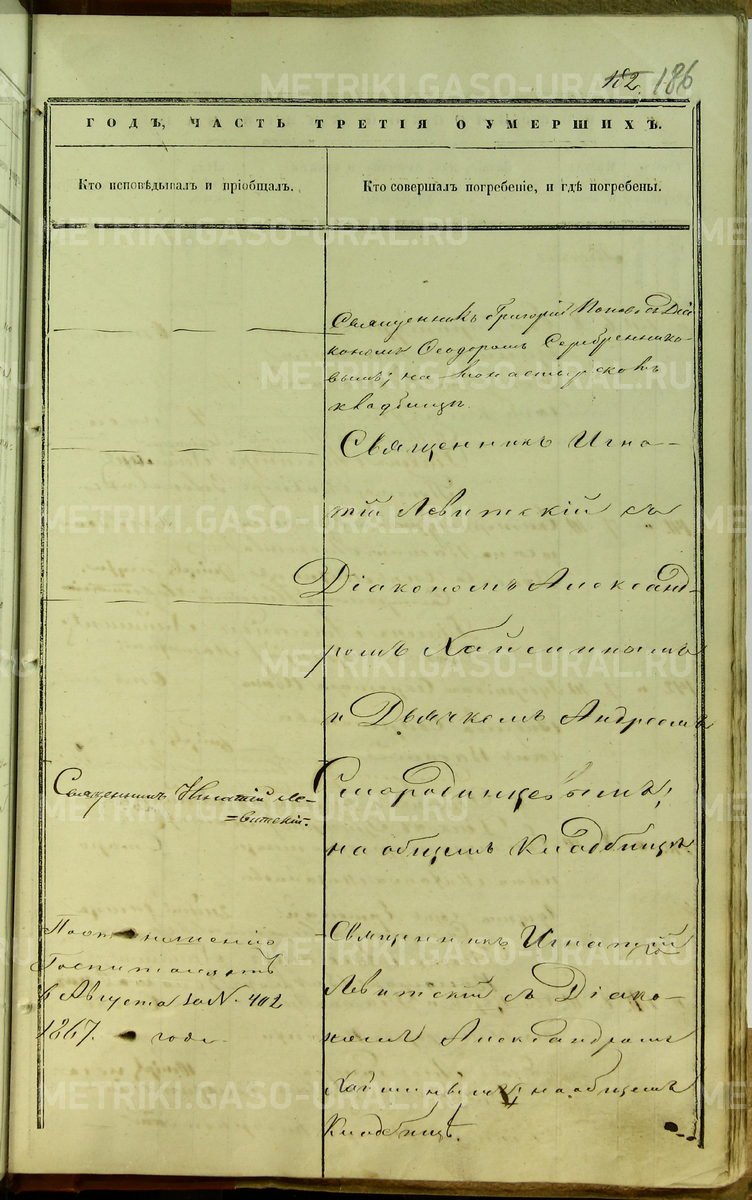 182. 186
ГОДЪ, ЧАСТЬ ТРЕТІЯ О УМЕРШИХЪ.
Кто исповѣдывалъ и пріобщалъ.
Кто совершалъ погребеніе, и гдѣ погребены.
Священникъ Григорій Поповъ съ Діа
кономъ Ѳеодоромъ Серебреннико-
вымъ; на монастырскомъ
кладбищѣ.
Священникъ Игна-
тій Левитскій съ
Діакономъ Александ-
ромъ Хайминымъ
и Дьячкомъ Андреемъ
Смородинцевымъ;
на общемъ Кладбищѣ.
Священникъ Игнатій Ле-
=витскій.
По отношенію
Госпиталя отъ
6 Августа за № 402
1867. года
Священникъ Игнатій
Левитскій съ Діако-
номъ Александромъ
Хайминымъ; на общемъ
Кладбищѣ.
METRIKI.GASO-URAL.RU